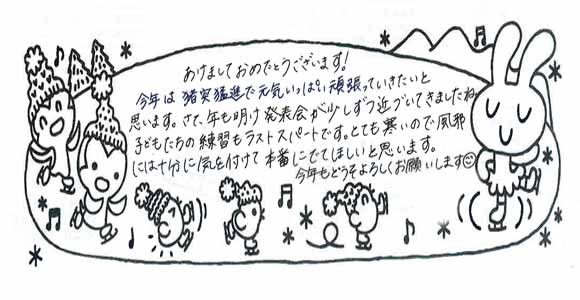 あけましておめでとうございます!
今年は猪突猛進で元気いっぱい頑張っていきたいと
思います。さて、年も明け発表会が少しずつ近づいてきましたね。
子どもたちの練習もラストスパートです。とても寒いので風邪
には十分に気を付けて本番にでてほしいと思います。
今年もどうぞよろしくお願いします☺